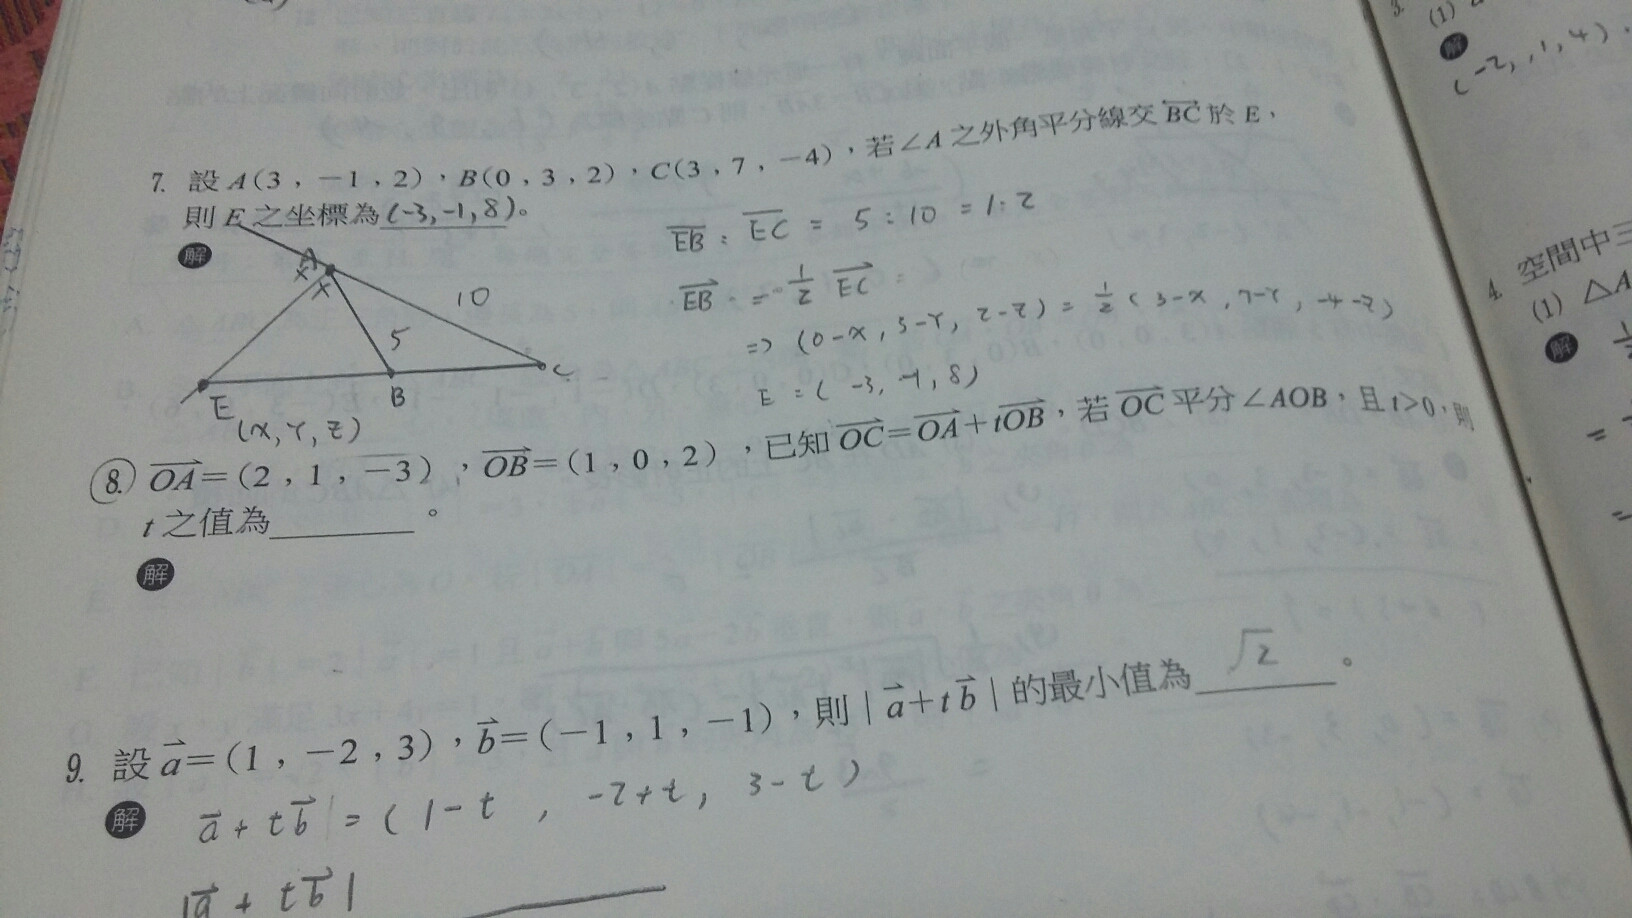 7. 設 A(3，－1，2)，B(0，3，2)，C(3，7，－4)，若∠A 之外角平分線交 BC 於 E，
則 E 之坐標為 (-3,-1,8)。
解
A
x
x
10
5
E
B
C
(x,Y,Z)
EB : EC = 5 : 10 = 1:2
EB = 1/2 EC
=> (0-x, 3-Y, 2-Z) = 1/2 (3-x, 7-Y, -4-Z)
E = (-3, -1, 8)
8. OA=(2，1，－3)，OB=(1，0，2)，已知 OC=OA+tOB，若 OC 平分∠AOB，且 t>0，則
t 之值為 。
解
9. 設 a=(1，－2，3)，b=(－1，1，－1)，則 | a+t b | 的最小值為 √2 。
解
a + tb = (1-t, -2+t, 3-t)
|a + tb|
3.
(1)
解
(-2, 1, 4).
4. 空間中三
(1) △A
解
=
=